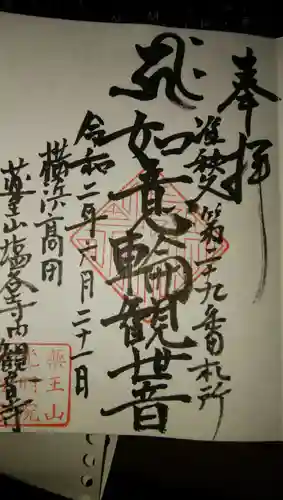 奉拝
准秩父第二十九番札所
如意輪觀世音
令和二年六月二十一日
横浜高田
薬王山塩谷寺内觀音寺
薬王山